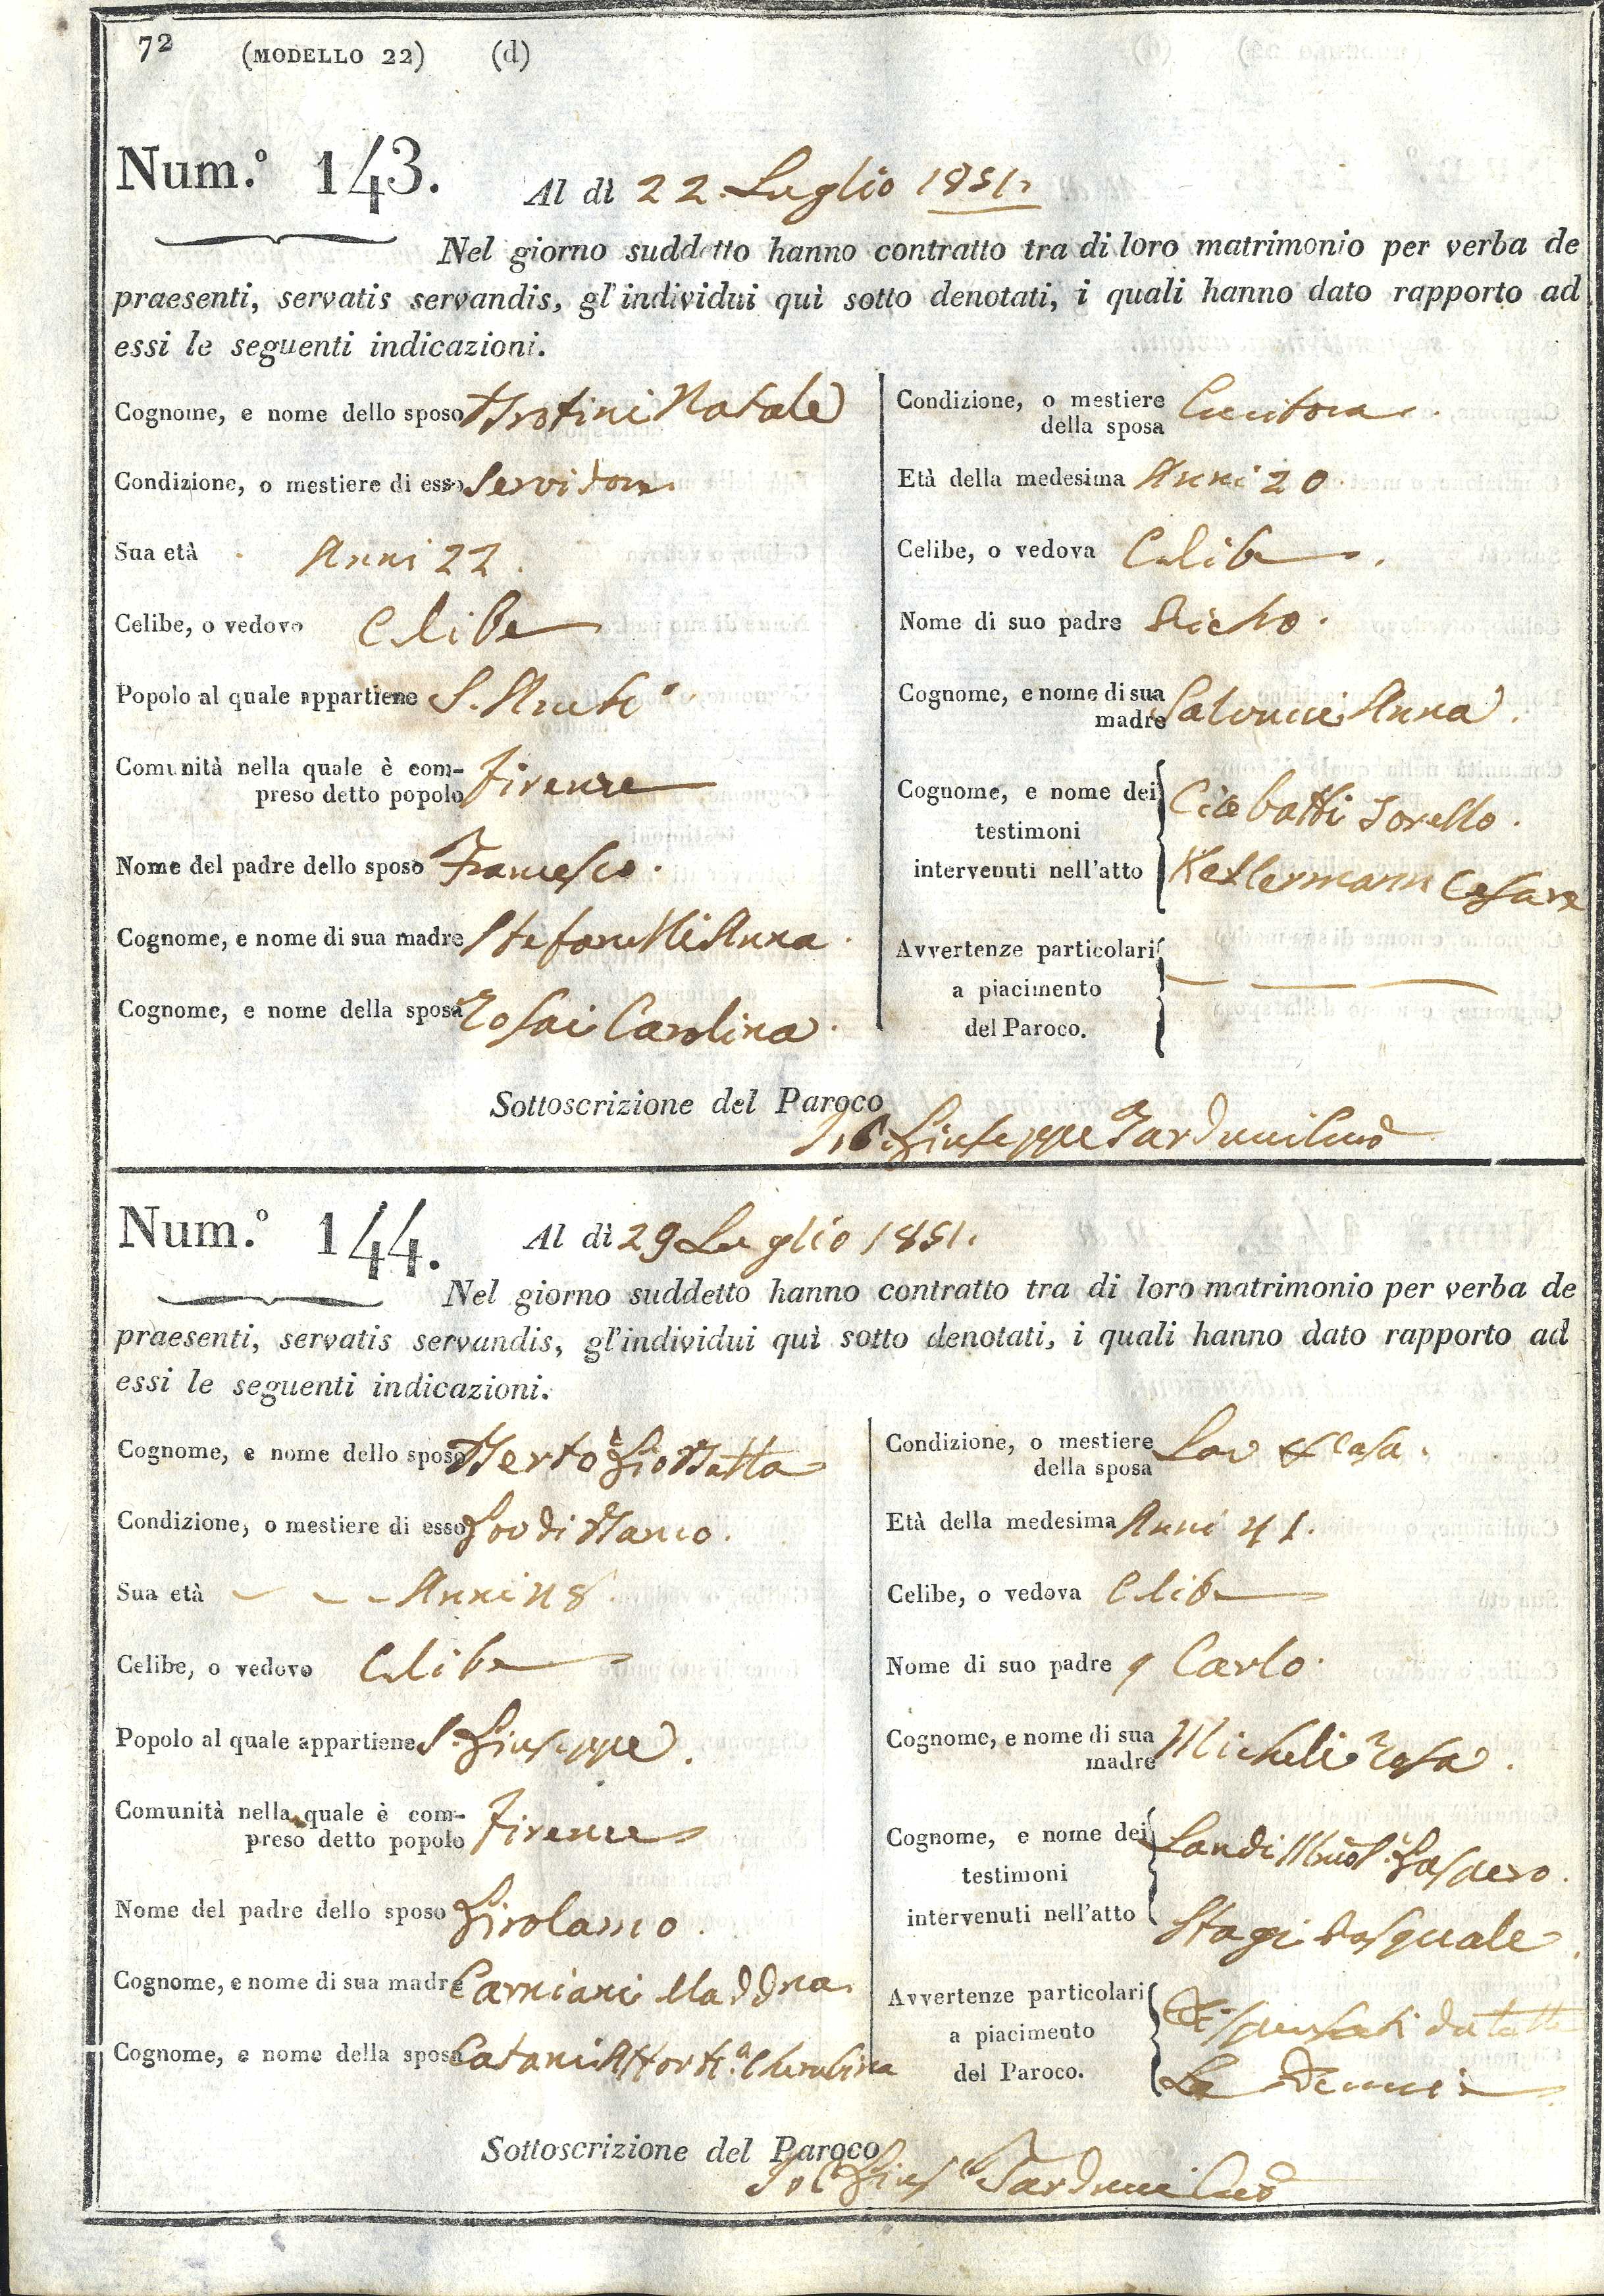 72 (MODELLO 22) (d)
Num.° 143. Al dì 22 Luglio 1851.
Nel giorno suddetto hanno contratto tra di loro matrimonio per verba de
praesenti, servatis servandis, gl'individui quì sotto denotati, i quali hanno dato rapporto ad
essi le seguenti indicazioni.
Cognome, e nome dello sposo Natale
Condizione, o mestiere di esso Servidore
Sua età Anni 22.
Celibe, o vedovo Celibe
Popolo al quale appartiene S.
Comunità nella quale è com-
preso detto popolo Firenze
Nome del padre dello sposo Francesco.
Cognome, e nome di sua madre Stefanelli Anna.
Cognome, e nome della sposa Rosai Carolina.
Condizione, o mestiere
della sposa Cucitora.
Età della medesima Anni 20.
Celibe, o vedova Celibe.
Nome di suo padre
Cognome, e nome di sua
madre Salvucci Anna.
Cognome, e nome dei
testimoni
intervenuti nell'atto
Ciabatti Torello.
Kellermann Cesare
Avvertenze particolari
a piacimento
del Paroco.
Sottoscrizione del Paroco
Giuseppe Tarducci
Num.° 144. Al dì 29 Luglio 1851.
Nel giorno suddetto hanno contratto tra di loro matrimonio per verba de
praesenti, servatis servandis, gl'individui quì sotto denotati, i quali hanno dato rapporto ad
essi le seguenti indicazioni.
Cognome, e nome dello sposo Berto Gio Batta
Condizione, o mestiere di esso di Banco.
Sua età Anni 48.
Celibe, o vedovo Celibe
Popolo al quale appartiene S. Giuseppe.
Comunità nella quale è com-
preso detto popolo Firenze
Nome del padre dello sposo Girolamo.
Cognome, e nome di sua madre Carniani Maddna.
Cognome, e nome della sposa Catani Cherubina
Condizione, o mestiere
della sposa Casa.
Età della medesima Anni 41.
Celibe, o vedova Celibe
Nome di suo padre q Carlo.
Cognome, e nome di sua
madre Micheli Rosa.
Cognome, e nome dei
testimoni
intervenuti nell'atto
Landi Gaspero.
Stagi Pasquale.
Avvertenze particolari
a piacimento
del Paroco.
Dispensati da tutte
Le Denunzie
Sottoscrizione del Paroco
Tarducci